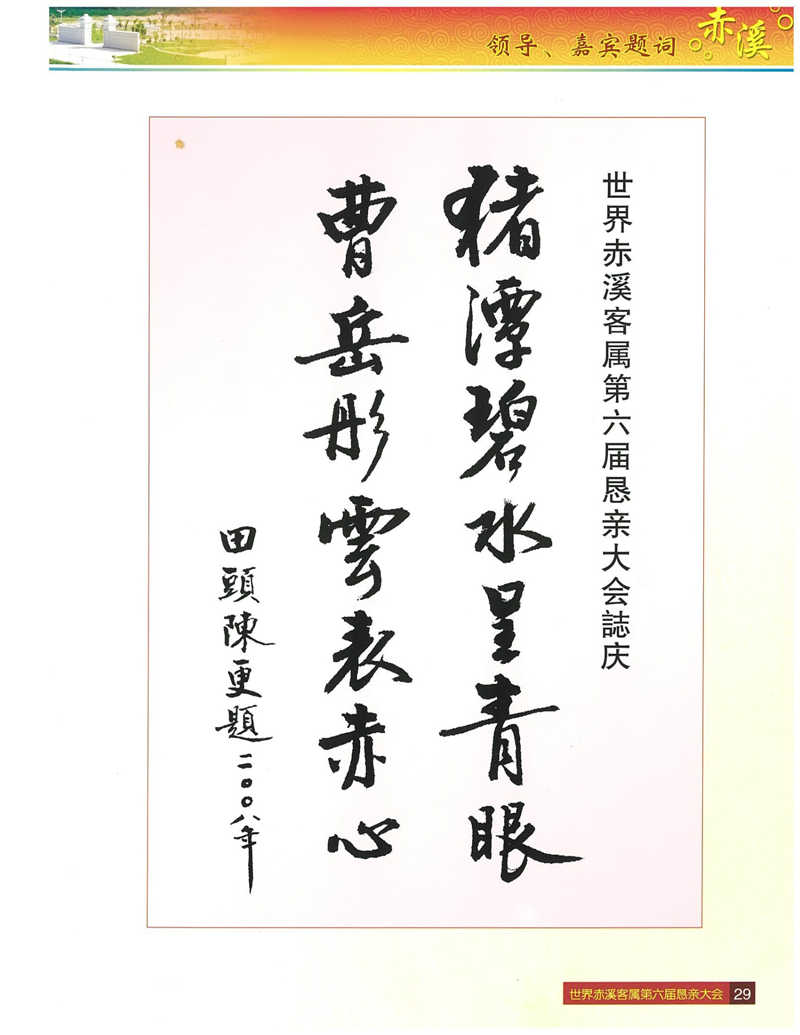 领导、嘉宾题词
赤溪
世界赤溪客属第六届恳亲大会誌庆
猪潭碧水呈青眼
曹岳彤雲表赤心
田頭陳更題二〇〇八年
世界赤溪客属第六届恳亲大会 29